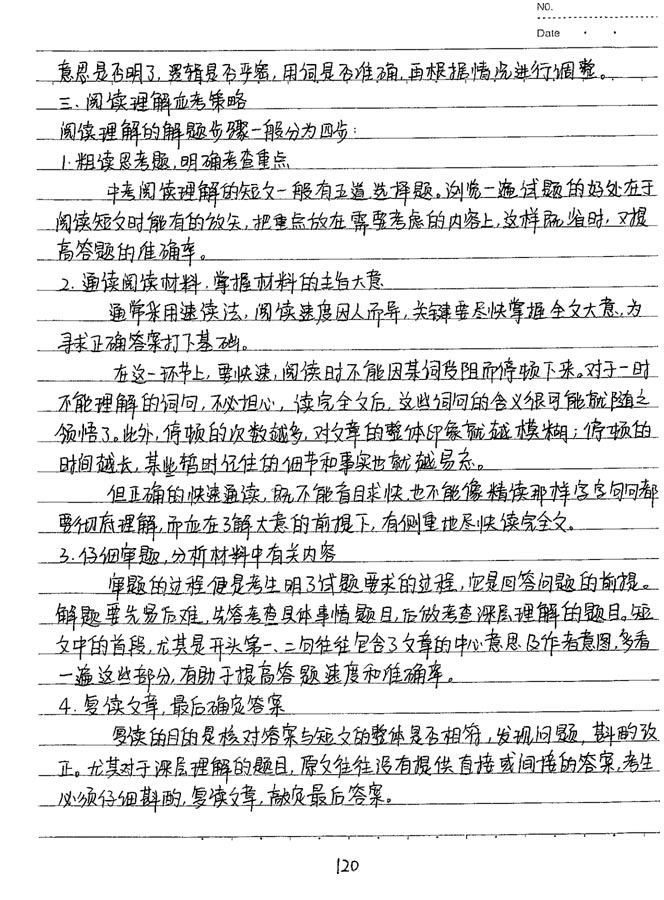 No.
Date
意思是否明了,逻辑是否严密,用词是否准确,再根据情况进行调整。
三、阅读理解应考策略
阅读理解的解题步骤一般分为四步:
1.粗读思考题,明确考查重点
中考阅读理解的短文一般有五道选择题。浏览一遍试题的好处在于
阅读短文时能有的放矢,把重点放在需要考虑的内容上,这样既省时,又提
高答题的准确率。
2.通读阅读材料,掌握材料的主旨大意
通常采用速读法,阅读速度因人而异,关键要尽快掌握全文大意,为
寻求正确答案打下基础。
在这一环节上,要快速,阅读时不能因某词受阻而停顿下来。对于一时
不能理解的词句,不必担心,读完全文后,这些词句的含义很可能就随之
领悟了。此外,停顿的次数越多,对文章的整体印象就越模糊;停顿的
时间越长,某些暂时记住的细节和事实也就越易忘。
但正确的快速通读,既不能盲目求快,也不能像精读那样字字句句都
要彻底理解,而应在了解大意的前提下,有侧重地尽快读完全文。
3.仔细审题,分析材料中有关内容
审题的过程便是考生明了试题要求的过程,它是回答问题的前提。
解题要先易后难,先答考查具体事情题目,后做考查深层理解的题目。短
文中的首段,尤其是开头第一、二句往往包含了文章的中心意思及作者意图,多看
一遍这些部分,有助于提高答题速度和准确率。
4.复读文章,最后确定答案
复读的目的是核对答案与短文的整体是否相符,发现问题,斟酌改
正。尤其对于深层理解的题目,原文往往没有提供直接或间接的答案,考生
必须仔细斟酌,复读文章,敲定最后答案。
120